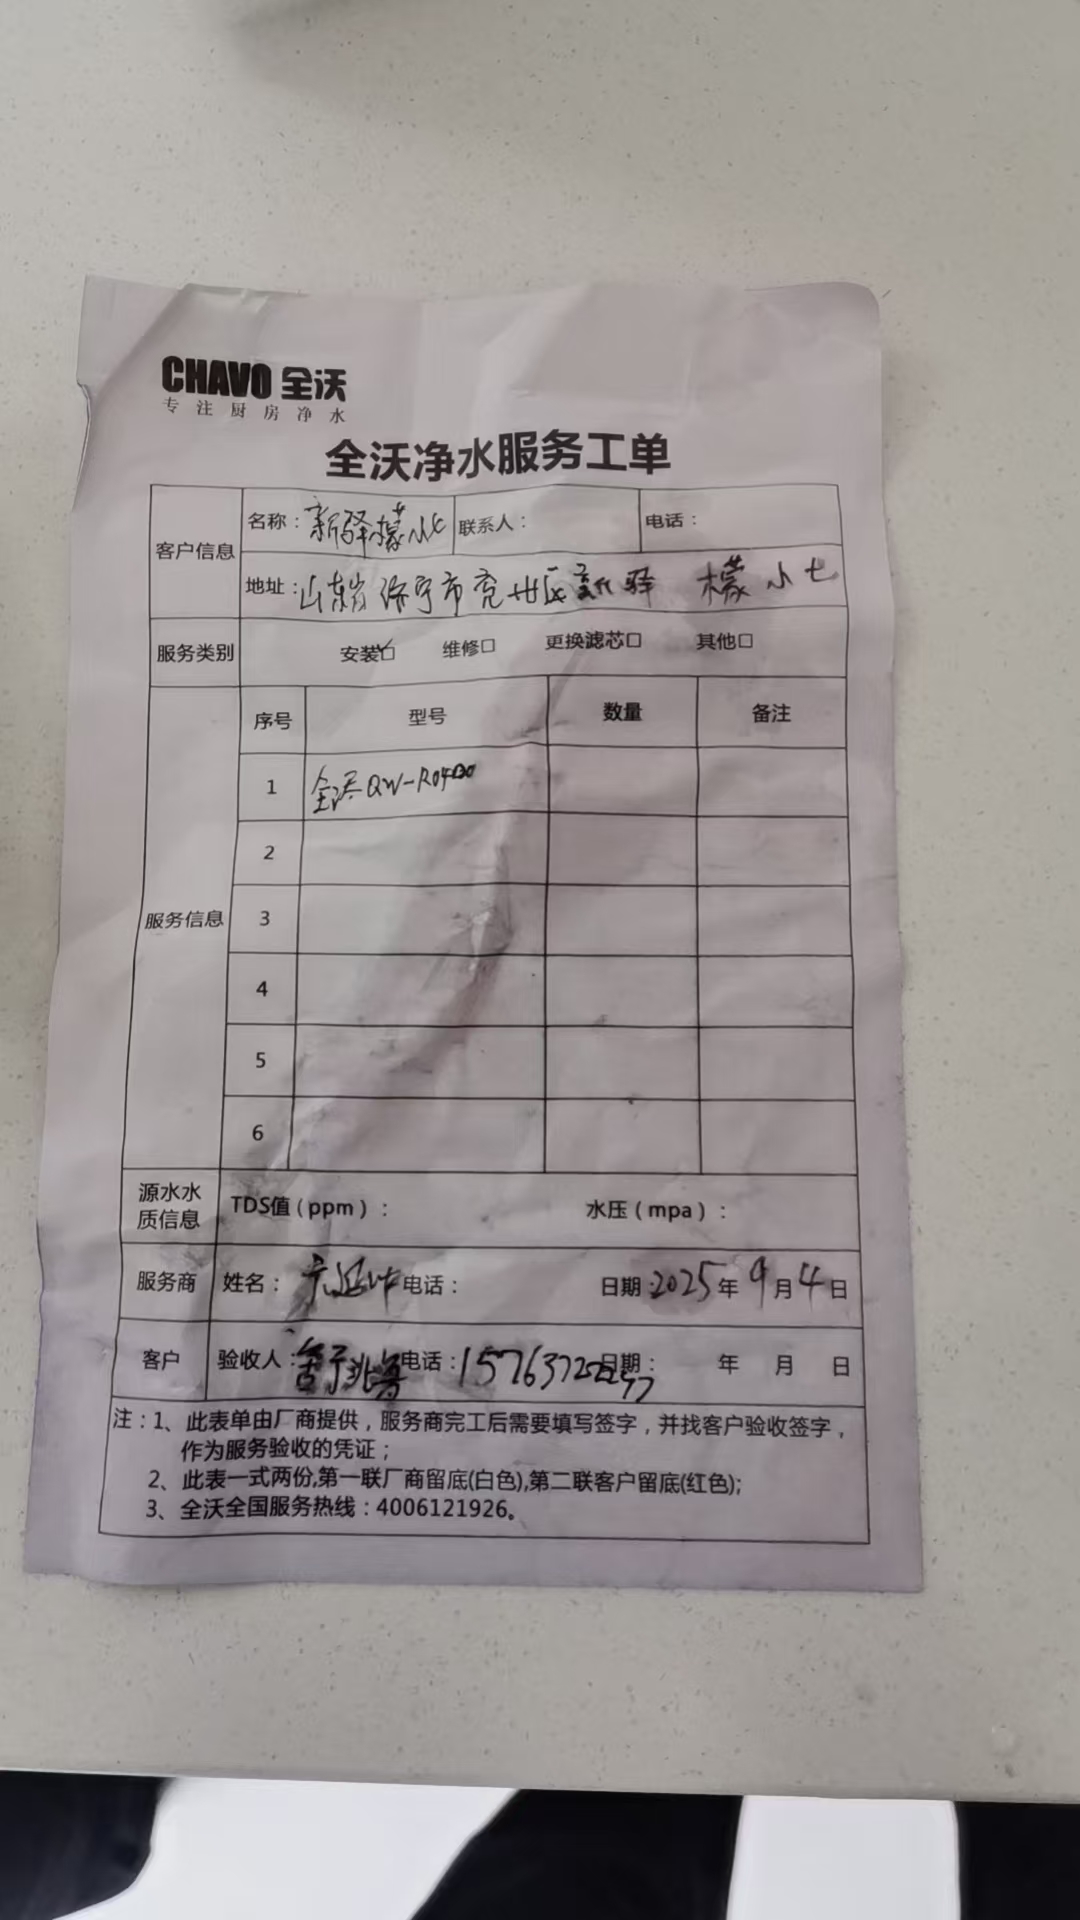 CHAVO 全沃
专注厨房净水
全沃净水服务工单
客户信息 名称：新驿檬小七 联系人： 电话：
地址：山东省济宁市兖州区新驿 檬小七
服务类别 安装☑ 维修□ 更换滤芯□ 其他□
服务信息 序号 型号 数量 备注
1 全沃QW-R0400
2
3
4
5
6
源水水质信息 TDS值（ppm）： 水压（mpa）：
服务商 姓名： 电话： 日期：2025年9月4日
客户 验收人： 电话： 日期： 年 月 日
注：1、此表单由厂商提供，服务商完工后需要填写签字，并找客户验收签字，
作为服务验收的凭证；
2、此表一式两份,第一联厂商留底(白色),第二联客户留底(红色);
3、全沃全国服务热线：4006121926。